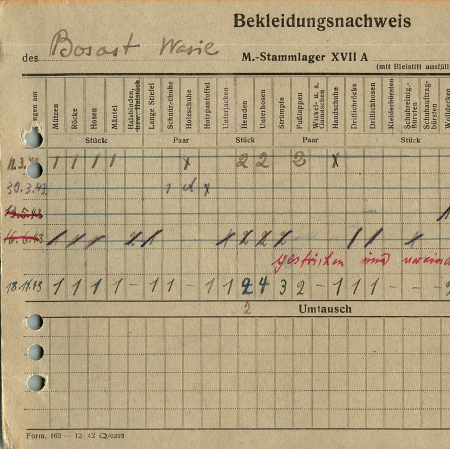 Bekleidungsnachweis
des Bosast Wasie M.-Stammlager XVII A
(mit Bleistift ausfüll
Mützen Röcke Hosen Mäntel Halsbinden, bzw. Halstüch. Lange Stiefel Schnürschuhe Holzschuhe Holzpantoffel Unterjacken Hemden Unterhosen Strümpfe Fußlappen Wickel- u. s. Gamaschen Handschuhe Drillichröcke Drillichhosen Kleiderbürsten Schuhreinig.-Bürsten Schuhauftrag-bürsten
Stück Paar Stück Paar Stück
1 1 1 1 x 2 2 2 x
30.3.43 1 x
13.5.43
16.6.43
gestrichen und
18.11.43 1 1 1 1 - 1 1 - 1 1 2 4 3 2 - 1 1 1 - - -
2
Umtausch
Form. 163 — 12. 42